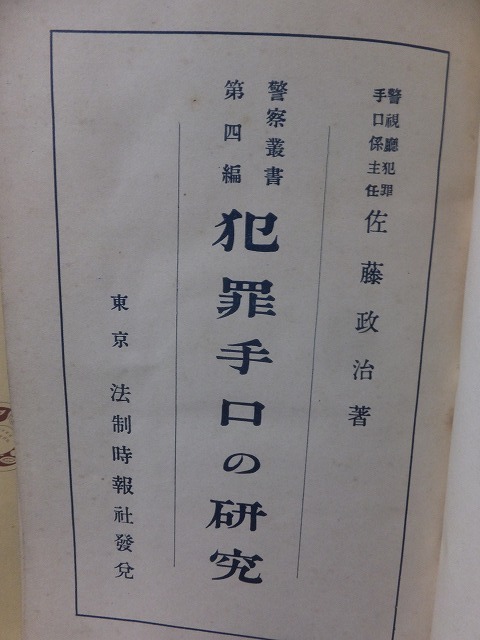 警視廳犯罪
手口係主任
佐藤政治著
警察叢書
第四編
犯罪手口の研究
東京 法制時報社發兌